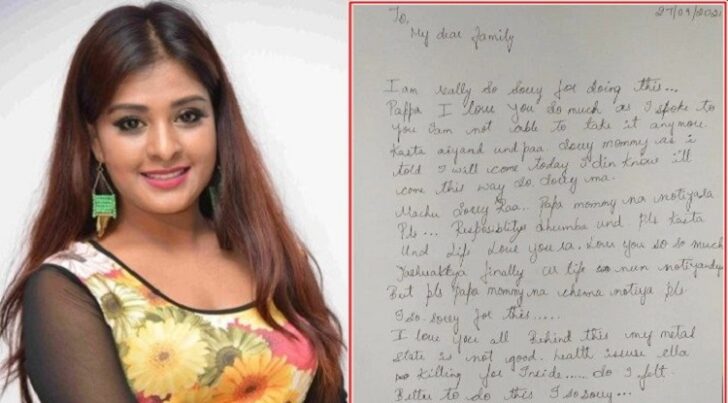 To,
27/09/2021
My dear family
I am really so sorry for doing this...
Pappa I love you so much as I spoke to
you I am not able to take it anymore.
Kasta aiyand und paa. Sorry mommy as i
told I will come today I din know i'll
come this way so sorry ma.
Machu sorry Raa... Papa mommy na notiyala
Pls... dhumba und. pls Kasta
Und life love you ra. Love you so so much
finally life nun
But pls papa mommy na chenna notiya pls
I so sorry for this.....
I love you all Behind this my metal
state is not good. health issuse ella
killing for Inside..... So I felt
Better to do this I so sorry...